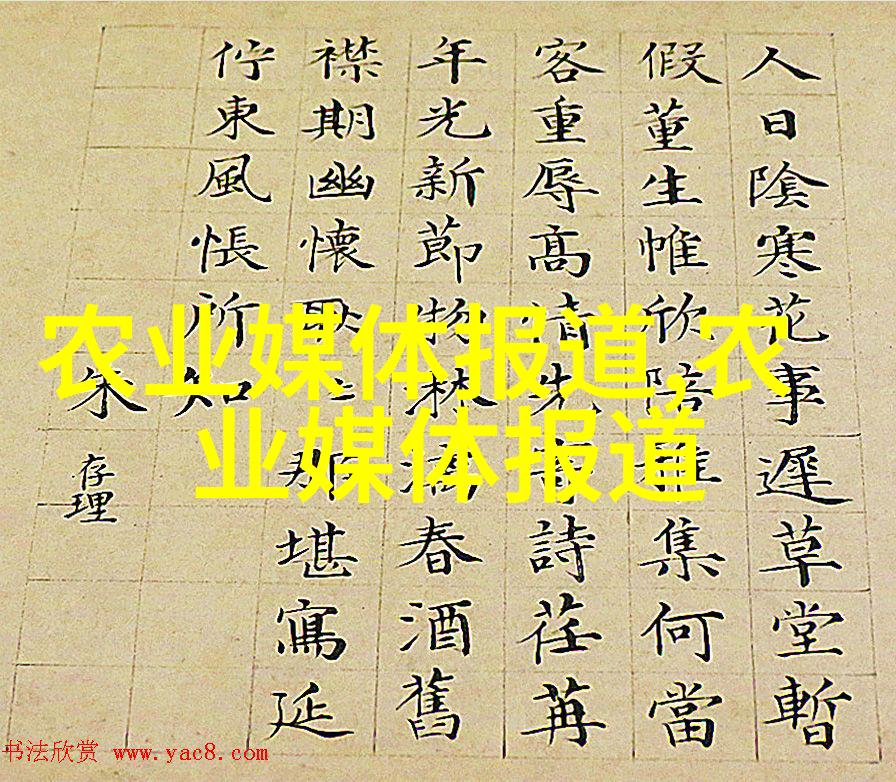 人日陰寒花事遲草堂暫
假董生帷欣陪雅集何當
客重辱高情先詩荏苒
年光新節物春酒舊
襟期幽懷那堪寫延
佇東風悵所知
朱存理
农业媒体报道,农
业媒体报道
书法欣赏 www.yac8.com